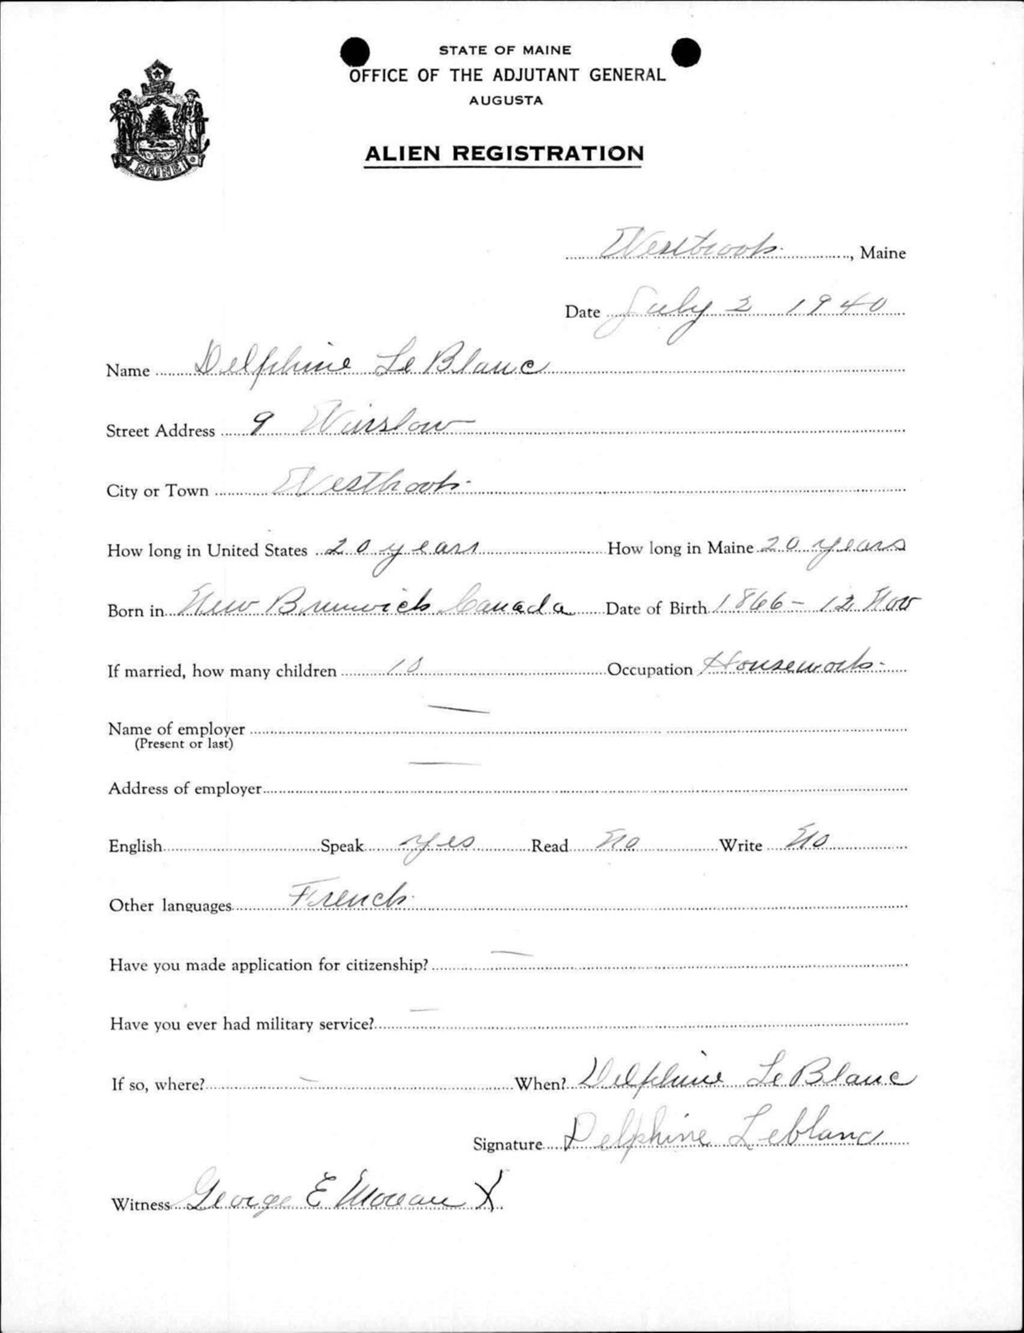 STATE OF MAINE
OFFICE OF THE ADJUTANT GENERAL
AUGUSTA
ALIEN REGISTRATION
Westbrook, Maine
Date July 2 1940
Name Delphine Le Blanc
Street Address 9 Winslow
City or Town Westbrook
How long in United States 20 years How long in Maine 20 years
Born in New Brunwick Canada Date of Birth 1866 - 12 Nov
If married, how many children 10 Occupation Housework
Name of employer
(Present or last)
Address of employer
English Speak Yes Read No Write No
Other languages French
Have you made application for citizenship? —
Have you ever had military service? —
If so, where? — When? Delphine Le Blanc
Signature Delphine Leblanc
Witness George E Moreau X